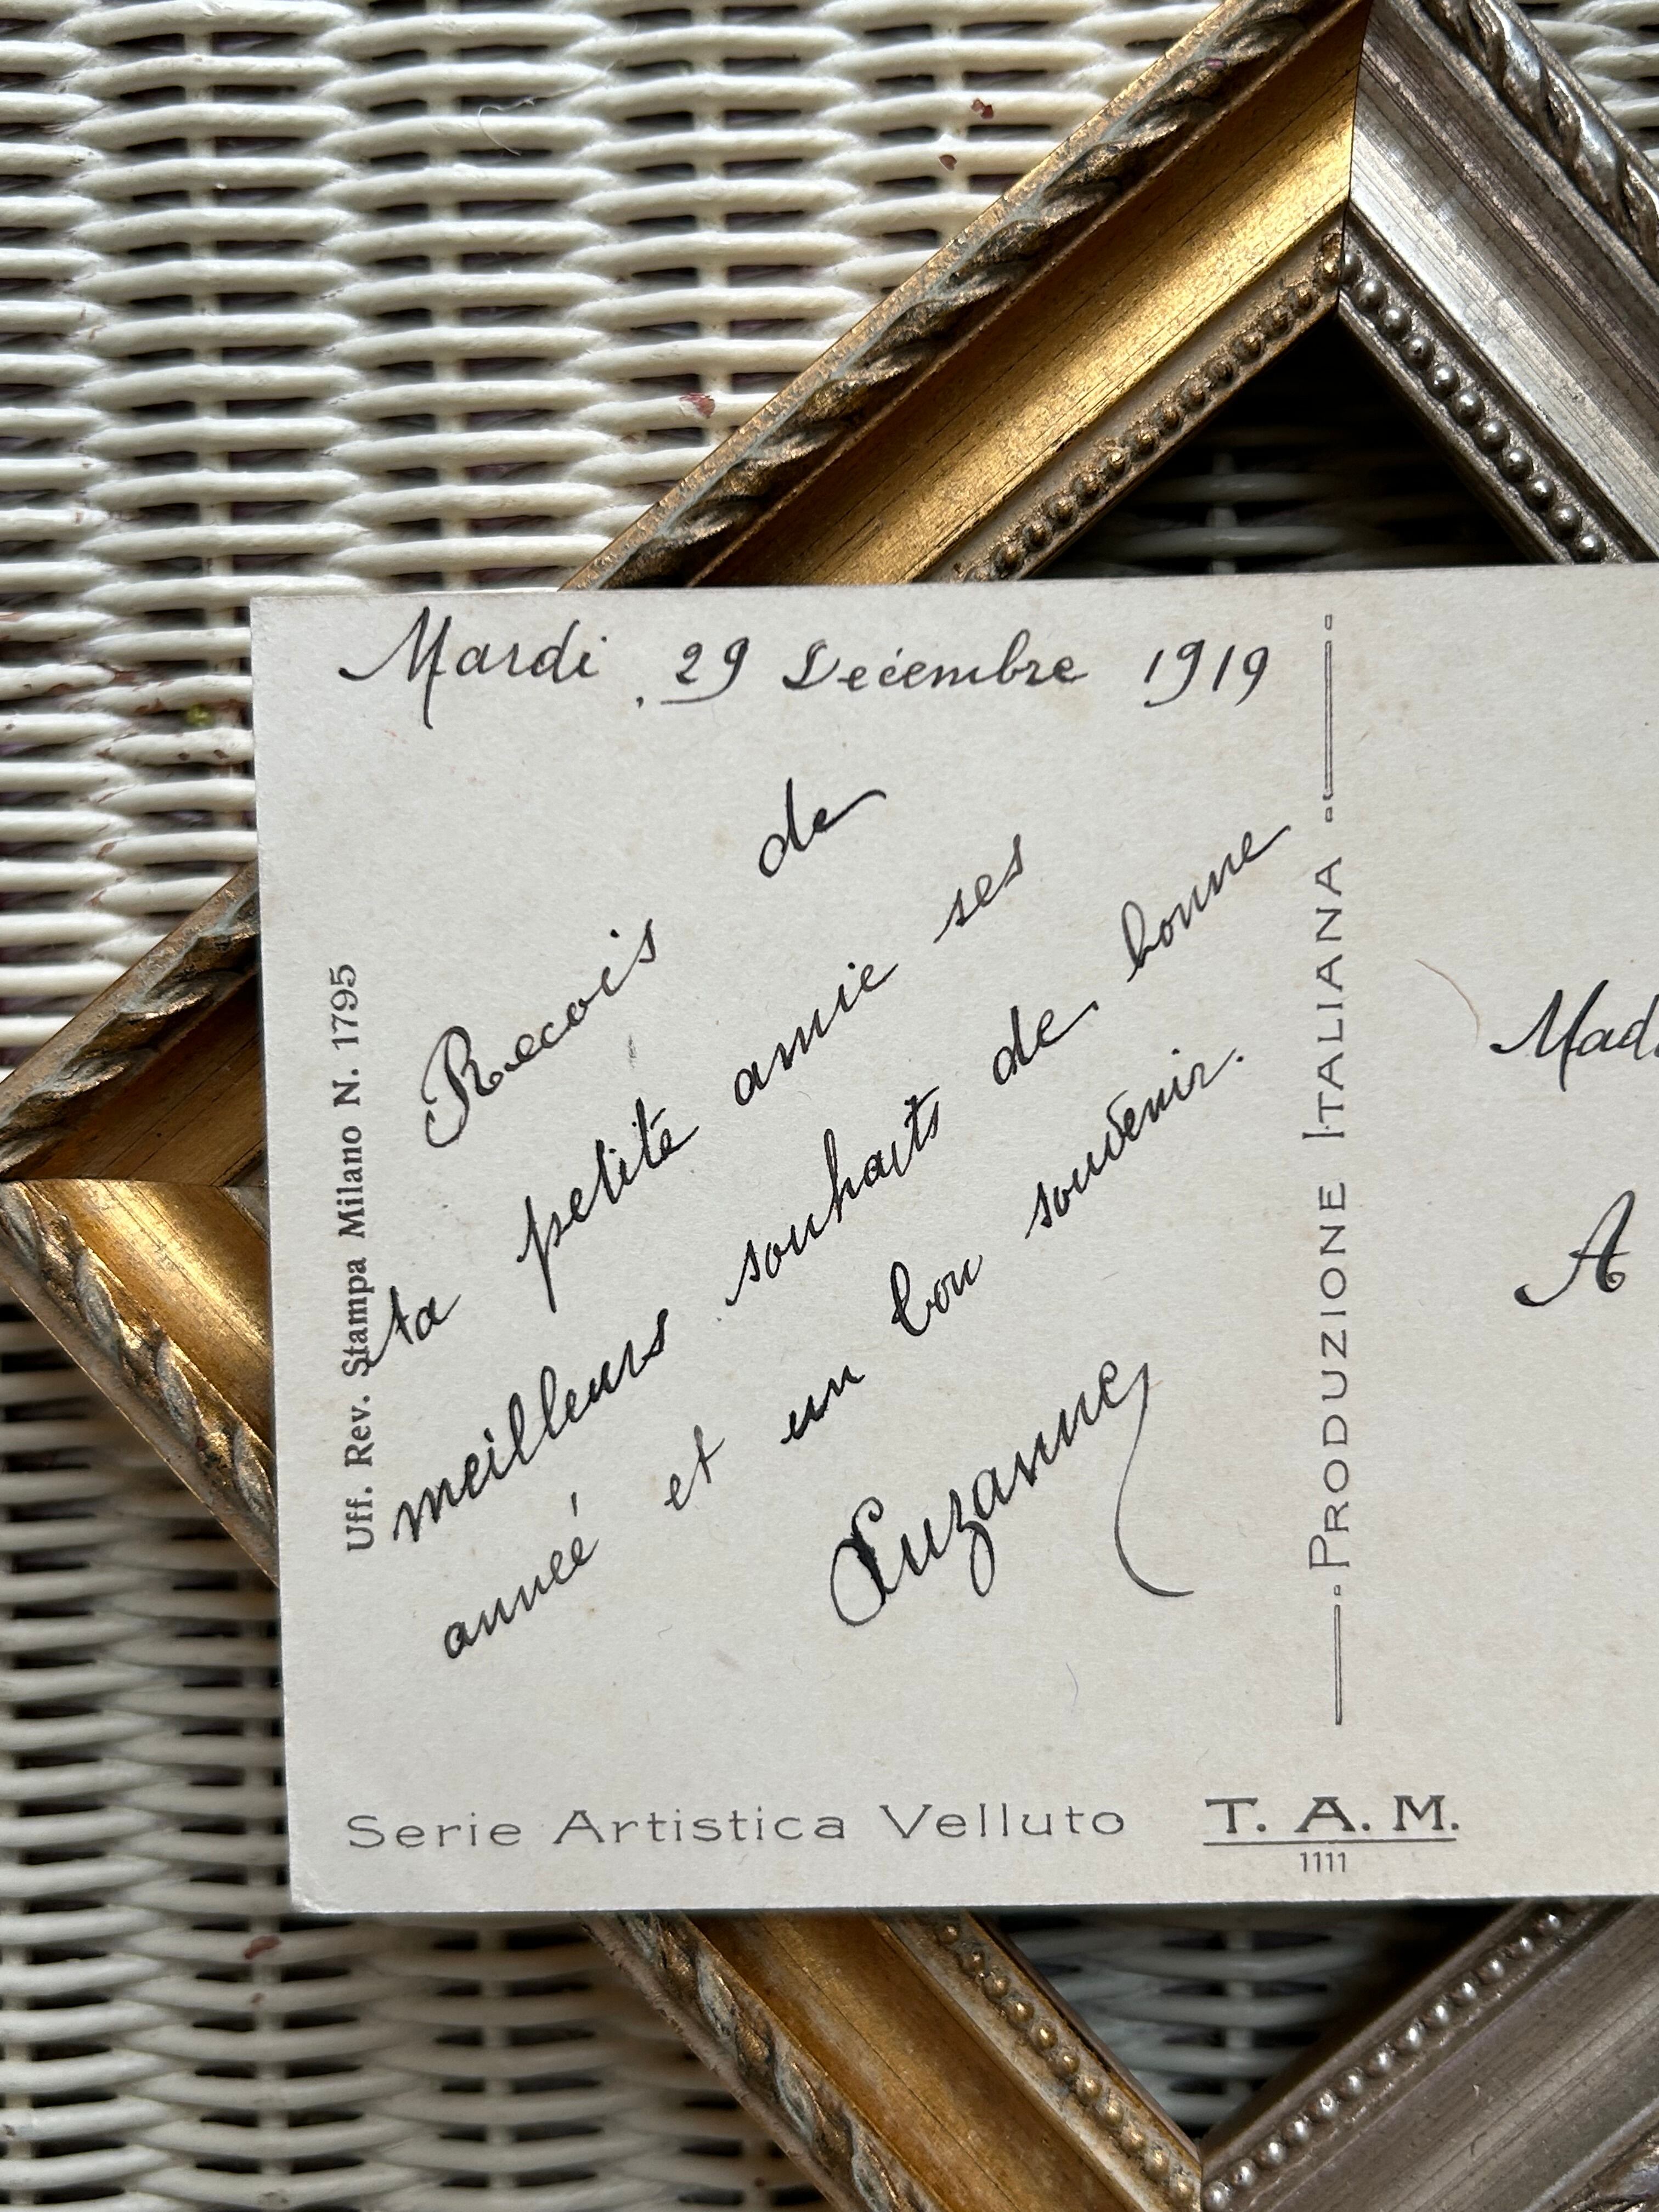 Mardi . 29 Décembre 1919
Recois de
ta petite amie ses
meilleurs souhaits de bonne
année et un bon souvenir.
Suzanne
Uff. Rev. Stampa Milano N. 1795
PRODUZIONE ITALIANA
Serie Artistica Velluto T. A. M.
1111
A